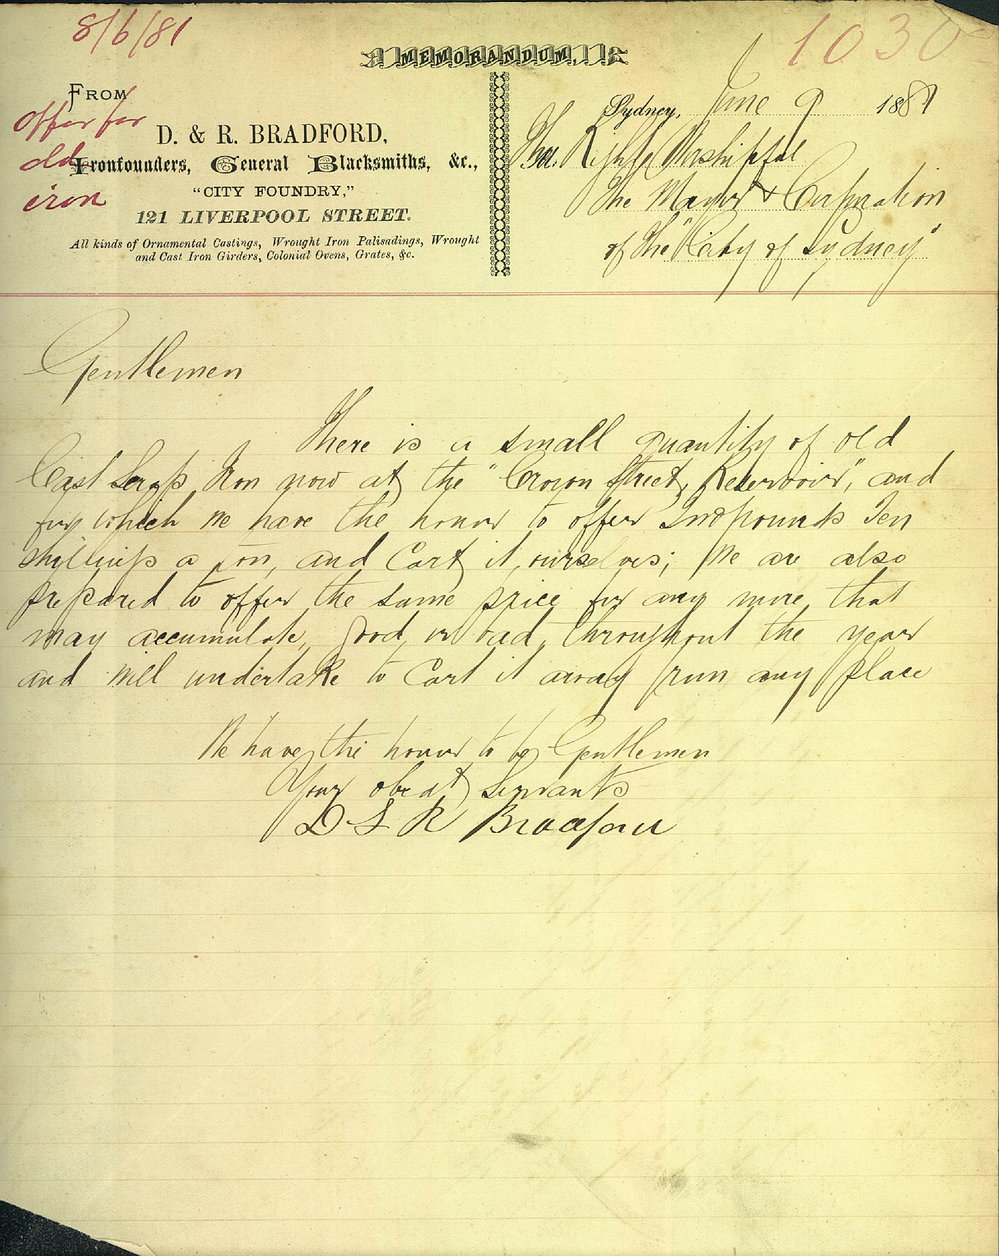 8/6/81
1030
MEMORANDUM,
FROM
Offer for
old
iron
D. & R. BRADFORD,
Ironfounders, General Blacksmiths, &c.,
"CITY FOUNDRY,"
121 LIVERPOOL STREET.
All kinds of Ornamental Castings, Wrought Iron Palisadings, Wrought
and Cast Iron Girders, Colonial Ovens, Grates, &c.
Sydney, June 9 1881
The Right Worshipful
The Mayor & Corporation
of the "City of Sydney"
Gentlemen
There is a small quantity of old
Cast Scrap Iron now at the "Crown Street Reservoir", and
for which we have the honor to offer Two pounds Ten
shillings a ton, and Cart it, ourselves; We are also
prepared to offer the same price for any more, that
may accumulate, good or bad, throughout the year
and will undertake to Cart it away from any place
We have the honor to be Gentlemen
Your obedt Servants
D & R Bradford